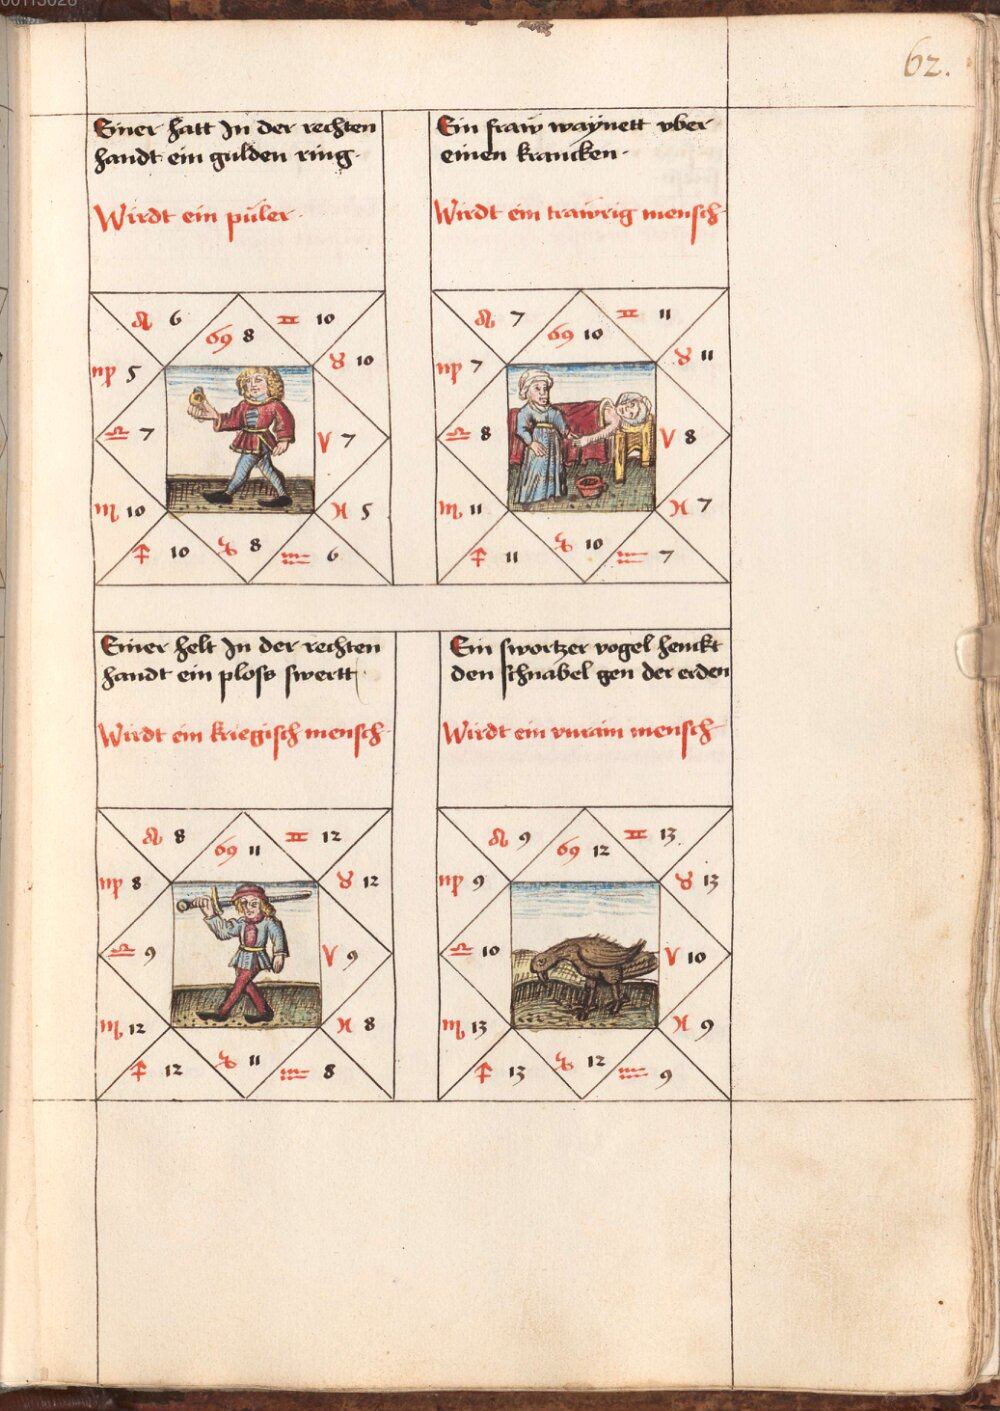 62.
Einer hatt In der rechten
handt ein gulden ring.
Wirdt ein püler.
♌ 6
♋ 8
♊ 10
♍ 5
♉ 10
♎ 7
♈ 7
♏ 10
♓ 5
♐ 10
♑ 8
♒ 6
Ein fraw waynett vber
einen krancken.
Wirdt ein trawrig mensch
♌ 7
♋ 10
♊ 11
♍ 7
♉ 11
♎ 8
♈ 8
♏ 11
♓ 7
♐ 11
♑ 10
♒ 7
Einer helt In der rechten
handt ein ploss swertt
Wirdt ein kriegisch mensch
♌ 8
♋ 11
♊ 12
♍ 8
♉ 12
♎ 9
♈ 9
♏ 12
♓ 8
♐ 12
♑ 11
♒ 8
Ein swortzer vogel henckt
den schnabel gen der erden
Wirdt ein vnrain mensch
♌ 9
♋ 12
♊ 13
♍ 9
♉ 13
♎ 10
♈ 10
♏ 13
♓ 9
♐ 13
♑ 12
♒ 9